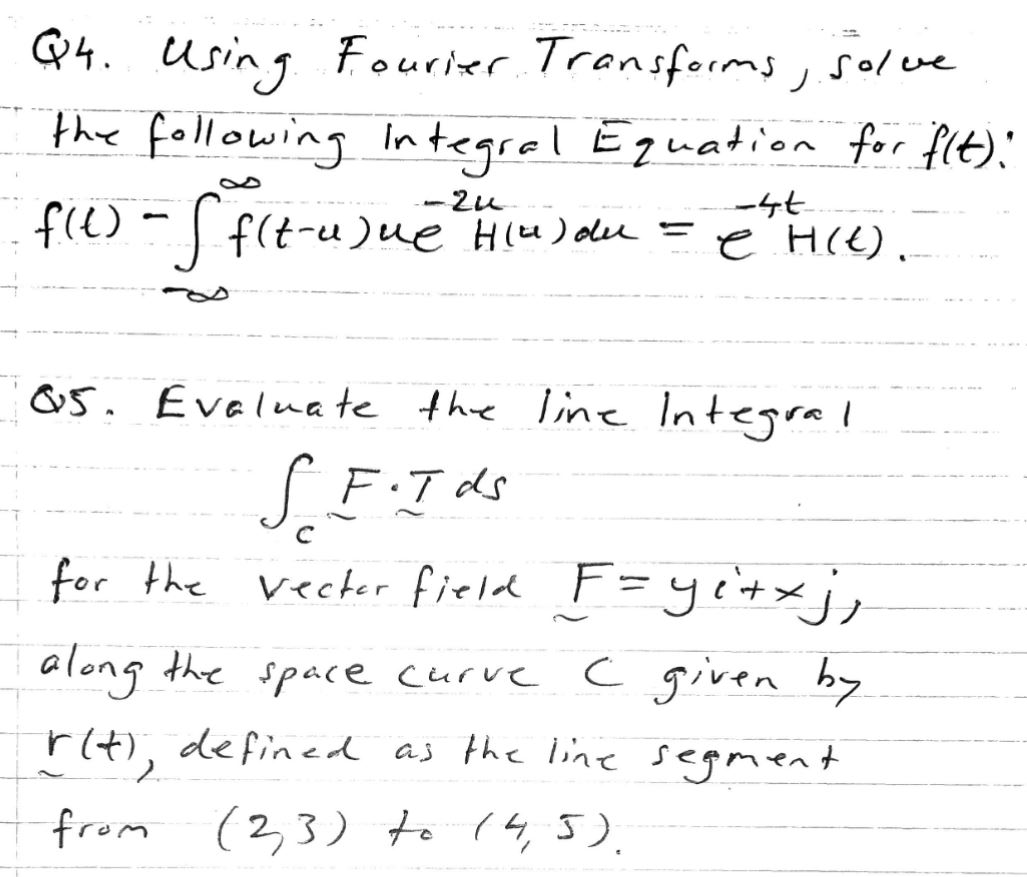 Q4. Using Fourier Transforms, solve
the following Integral Equation for f(t):
f(t) - ∫_{-∞}^{∞} f(t-u)ue^{-2u}H(u)du = e^{-4t}H(t).
Q5. Evaluate the line Integral
∫_C F·T ds
for the vector field F = yi+xj,
along the space curve C given by
r(t), defined as the line segment
from (2,3) to (4,5).